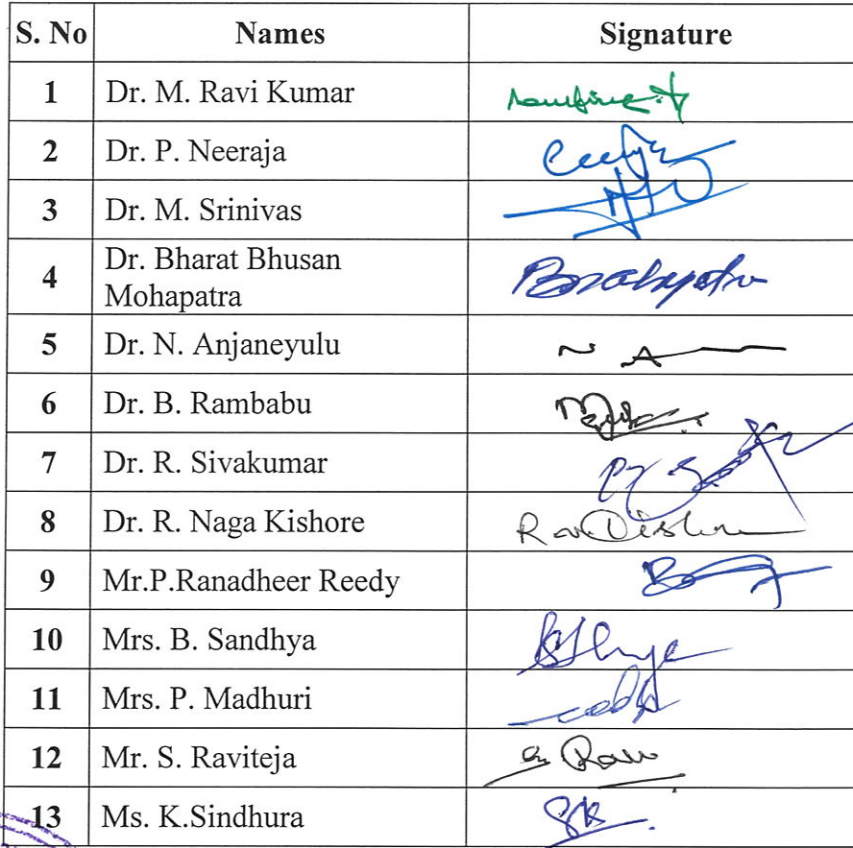 S. No Names Signature
1 Dr. M. Ravi Kumar
2 Dr. P. Neeraja
3 Dr. M. Srinivas
4 Dr. Bharat Bhusan
Mohapatra
5 Dr. N. Anjaneyulu N A
6 Dr. B. Rambabu
7 Dr. R. Sivakumar
8 Dr. R. Naga Kishore
9 Mr.P.Ranadheer Reedy
10 Mrs. B. Sandhya
11 Mrs. P. Madhuri
12 Mr. S. Raviteja
13 Ms. K.Sindhura